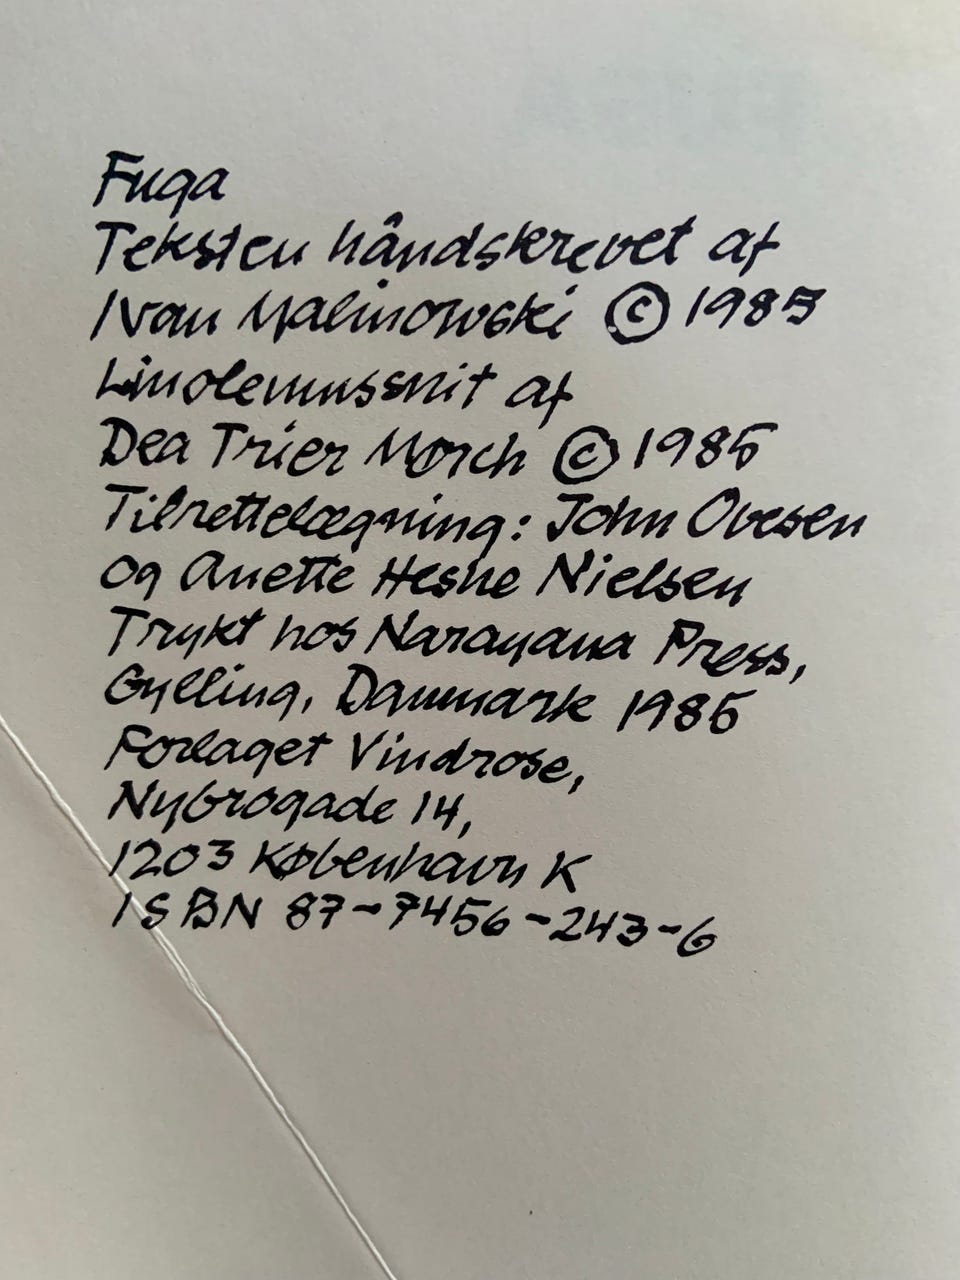 Fuga
Teksten håndskrevet af
Ivan Malinowski © 1985
Linoleumssnit af
Dea Trier Mørch © 1985
Tilrettelægning: John Ovesen
og Anette Hesne Nielsen
Trykt hos Narayana Press,
Gylling, Danmark 1985
Forlaget Vindrose,
Nybrogade 14,
1203 København K
ISBN 87-7456-243-6